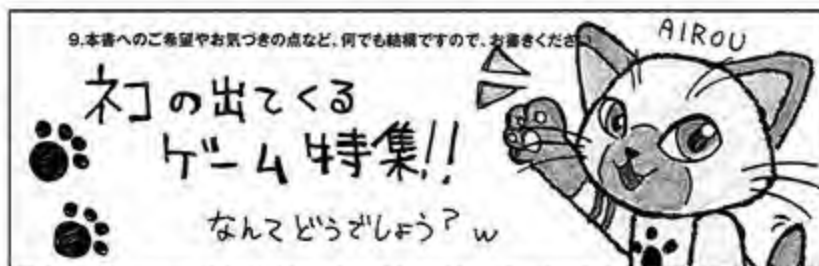 9.本書へのご希望やお気づきの点など、何でも結構ですので、お書きください
AIROU
ネコの出てくる
ゲーム特集!!
なんてどうでしょう?w